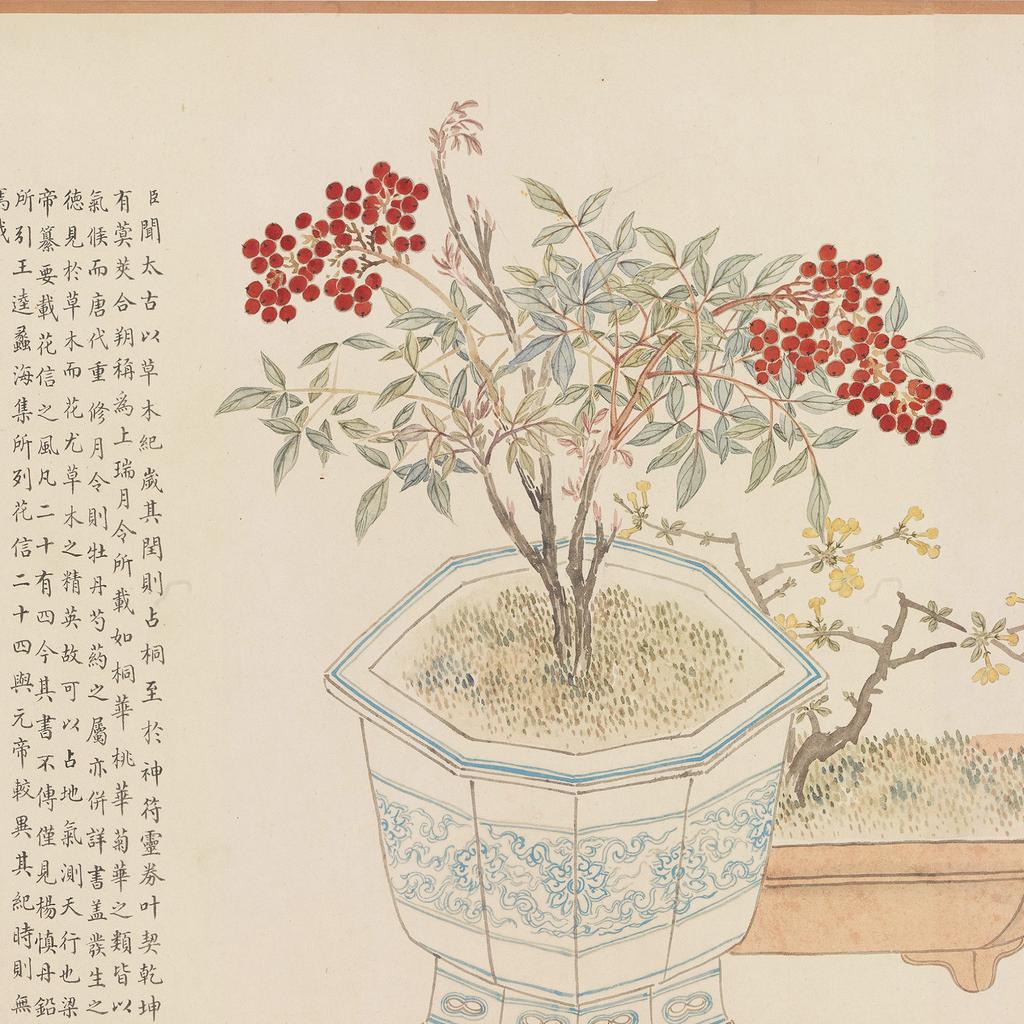 臣聞太古以草木紀歲其閏則占桐至於神符靈券叶契乾坤
有蓂莢合朔稱為上瑞月令所載如桐華桃華菊華之類皆以
氣候而唐代重修月令則牡丹芍藥之屬亦併詳書蓋發生之
德見於草木而花尤草木之精英故可以占地氣測天行也梁
帝纂要載花信之風凡二十有四今其書不傳僅見楊慎丹鉛
所引王逵蠡海集所列花信二十四與元帝較異其紀時則無